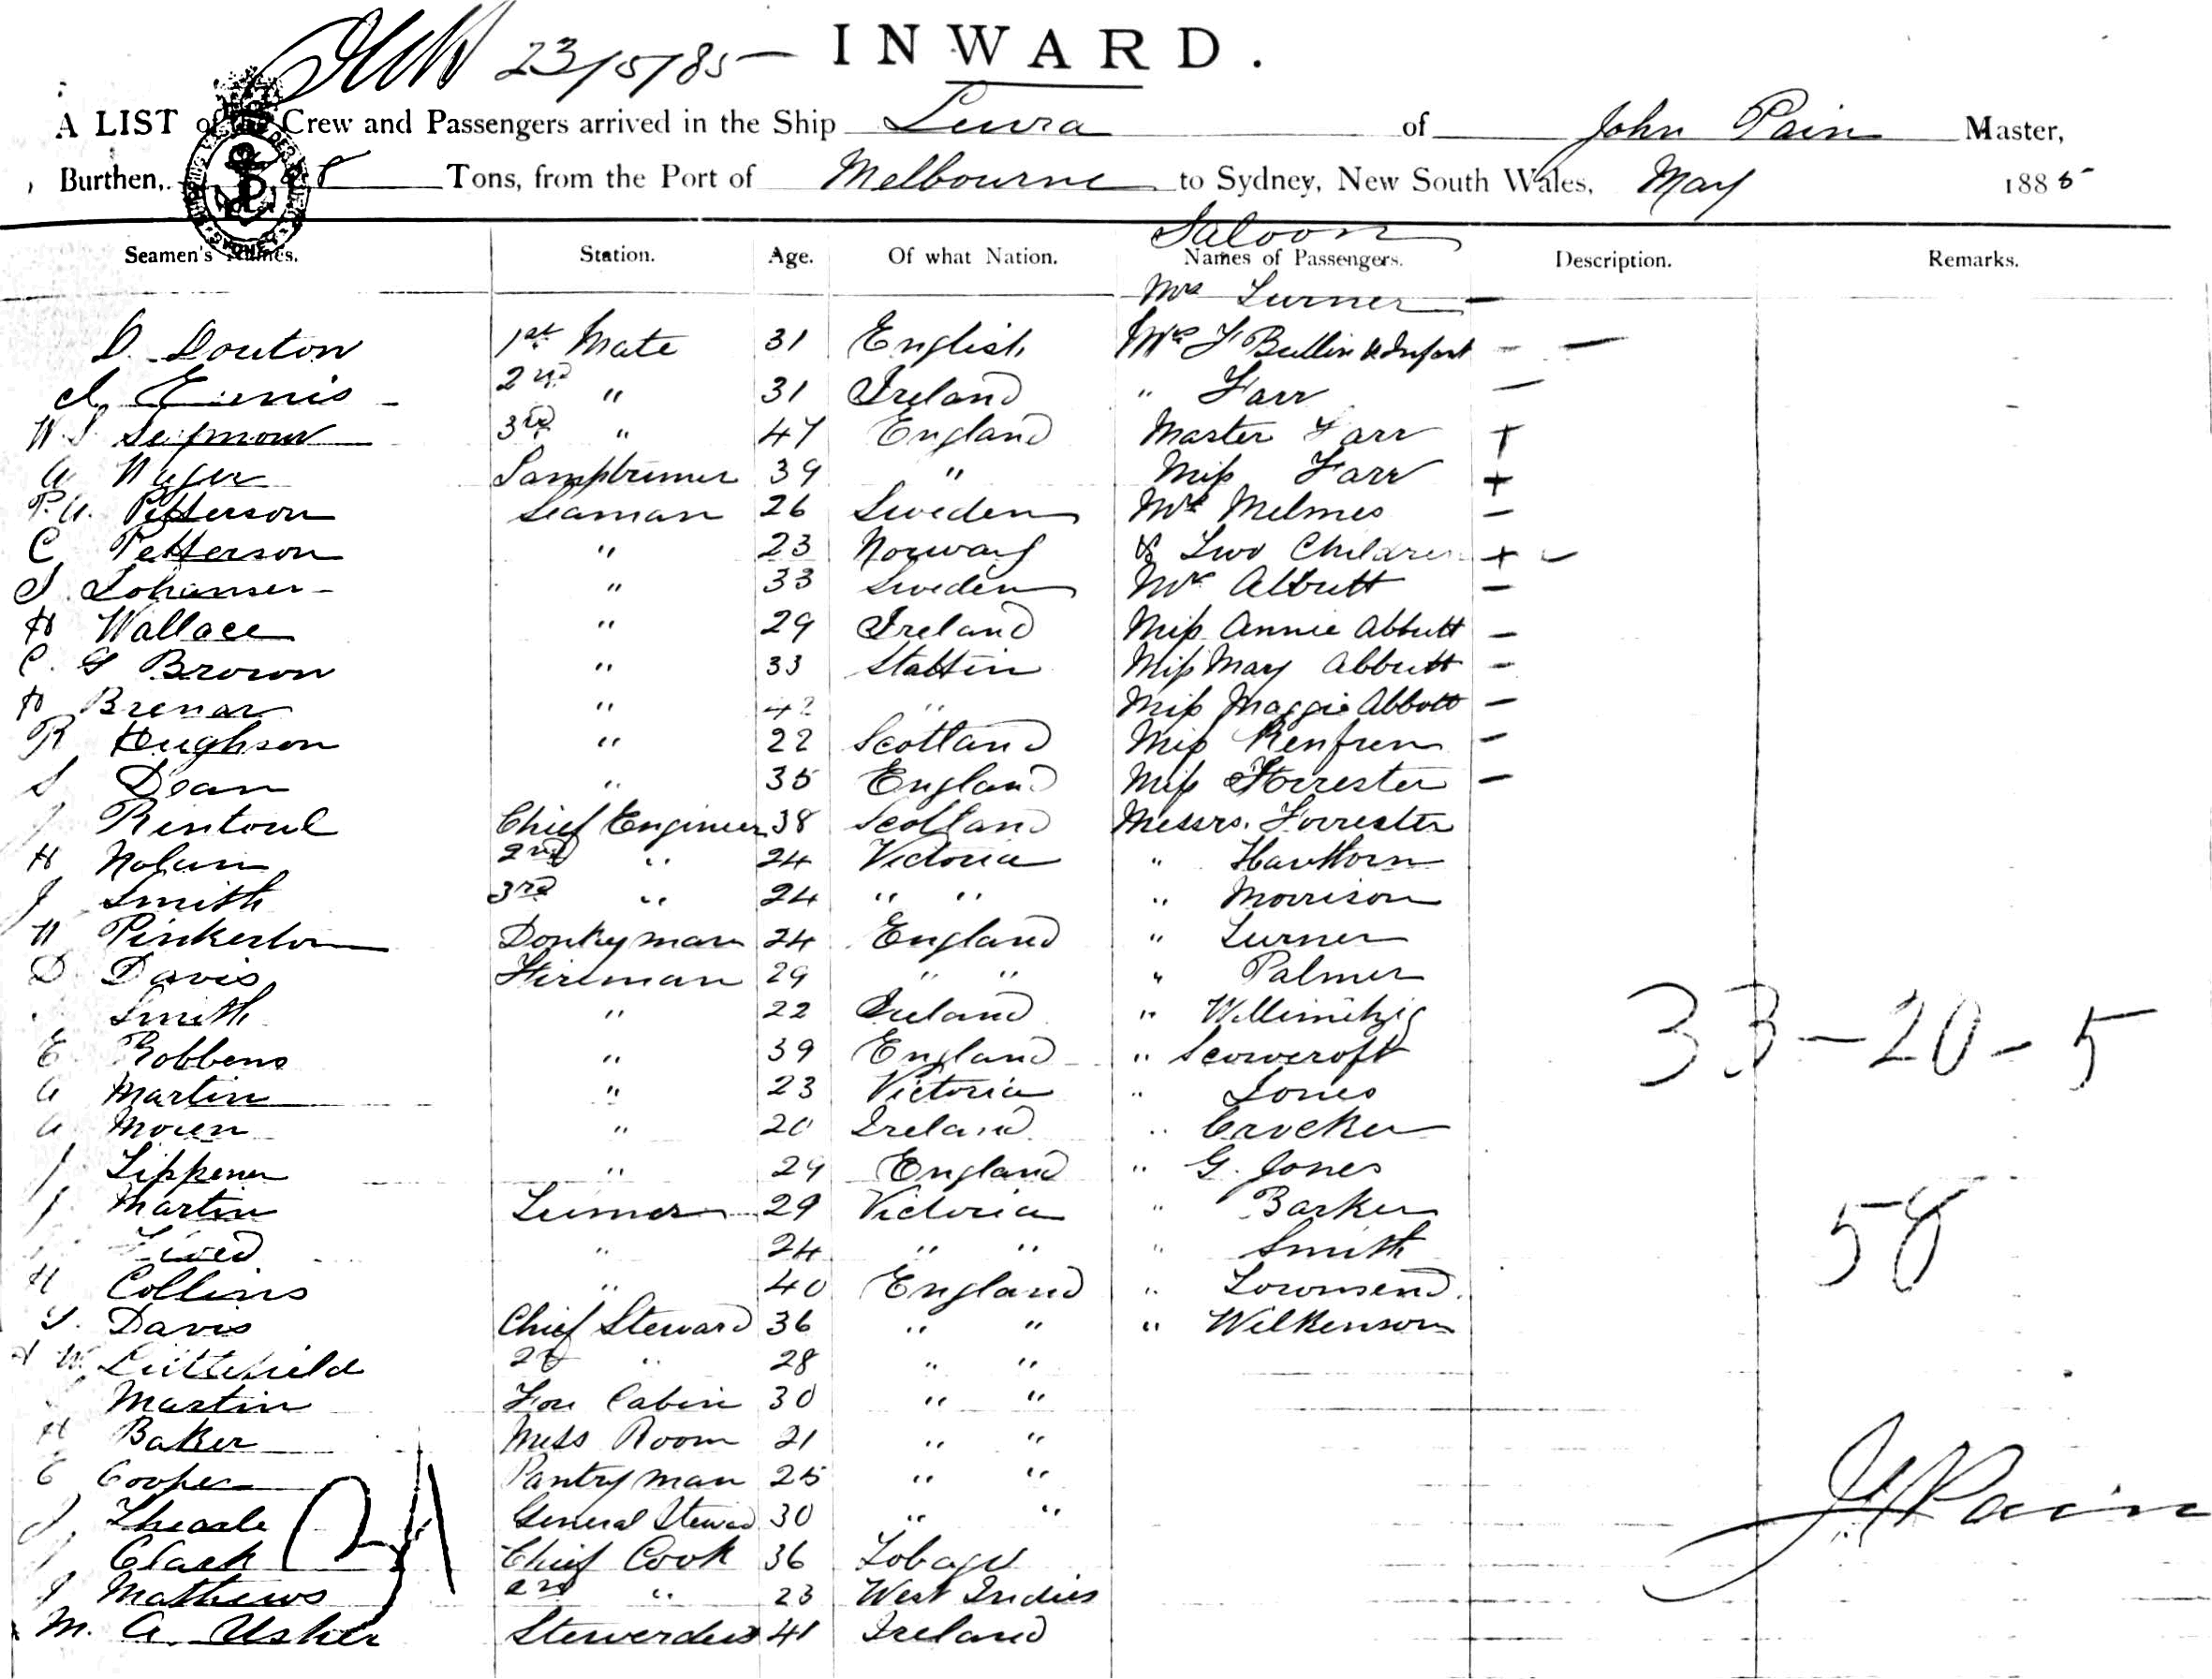 23/5/85 - INWARD.
A LIST of the Crew and Passengers arrived in the Ship Leura of John Pain Master,
Burthen, Tons, from the Port of Melbourne to Sydney, New South Wales, May 1885
Saloon
Seamen's Names. Station. Age. Of what Nation. Names of Passengers. Description. Remarks.
Mrs Turner -
D. Douton 1st Mate 31 English Mrs F Bullin & Infant - -
J Ennis - 2nd " 31 Ireland " Farr -
W. S. Seymour 3rd " 47 England Master Farr +
A Lamptrimer 39 " Miss Farr +
P. A. Petterson Seaman 26 Sweden Mrs Melmes -
C Petterson " 23 Norway & Two Children +
J. Johansen - " 33 Sweden Mrs Abbutt -
H Wallace " 29 Ireland Miss Annie Abbutt -
C. G Brown " 33 Stattin Miss May Abbutt -
H Brenar " 42 " Miss Maggie Abbott -
R Hughson " 22 Scotland Miss Renfrew -
S Dean " 35 England Miss Forrester -
J Rintoul Chief Engineer 38 Scotland Messrs. Forrester
H Nolan 2nd " 24 Victoria " Hawthorn
J Smith 3rd " 24 " " " Morrison
H Pinkerton Donkeyman 24 England " Turner
D Davis Fireman 29 " " " Palmer
Smith " 22 Ireland "
E Robbens " 39 England " Scowcroft
A Martin " 23 Victoria " Jones
A Moren " 20 Ireland " Crocker
J Tippener " 29 England " G. Jones
J Martin Trimer 29 Victoria " Barker
" 24 " " " Smith
H Collins " 40 England " Townsend
Davis Chief Steward 36 " " " Wilkenson
W. Littlefield 2d " 28 " "
Martin Fore Cabin 30 " "
H Baker Mess Room 21 " "
C Cooper Pantry man 25 " "
J Theakle General Steward 30 " "
Clark Chief Cook 36 Tobago
J Mathews 2nd " 23 West Indies
M. A. Usher Stewerdess 41 Ireland
33-20-5
58
J Pain